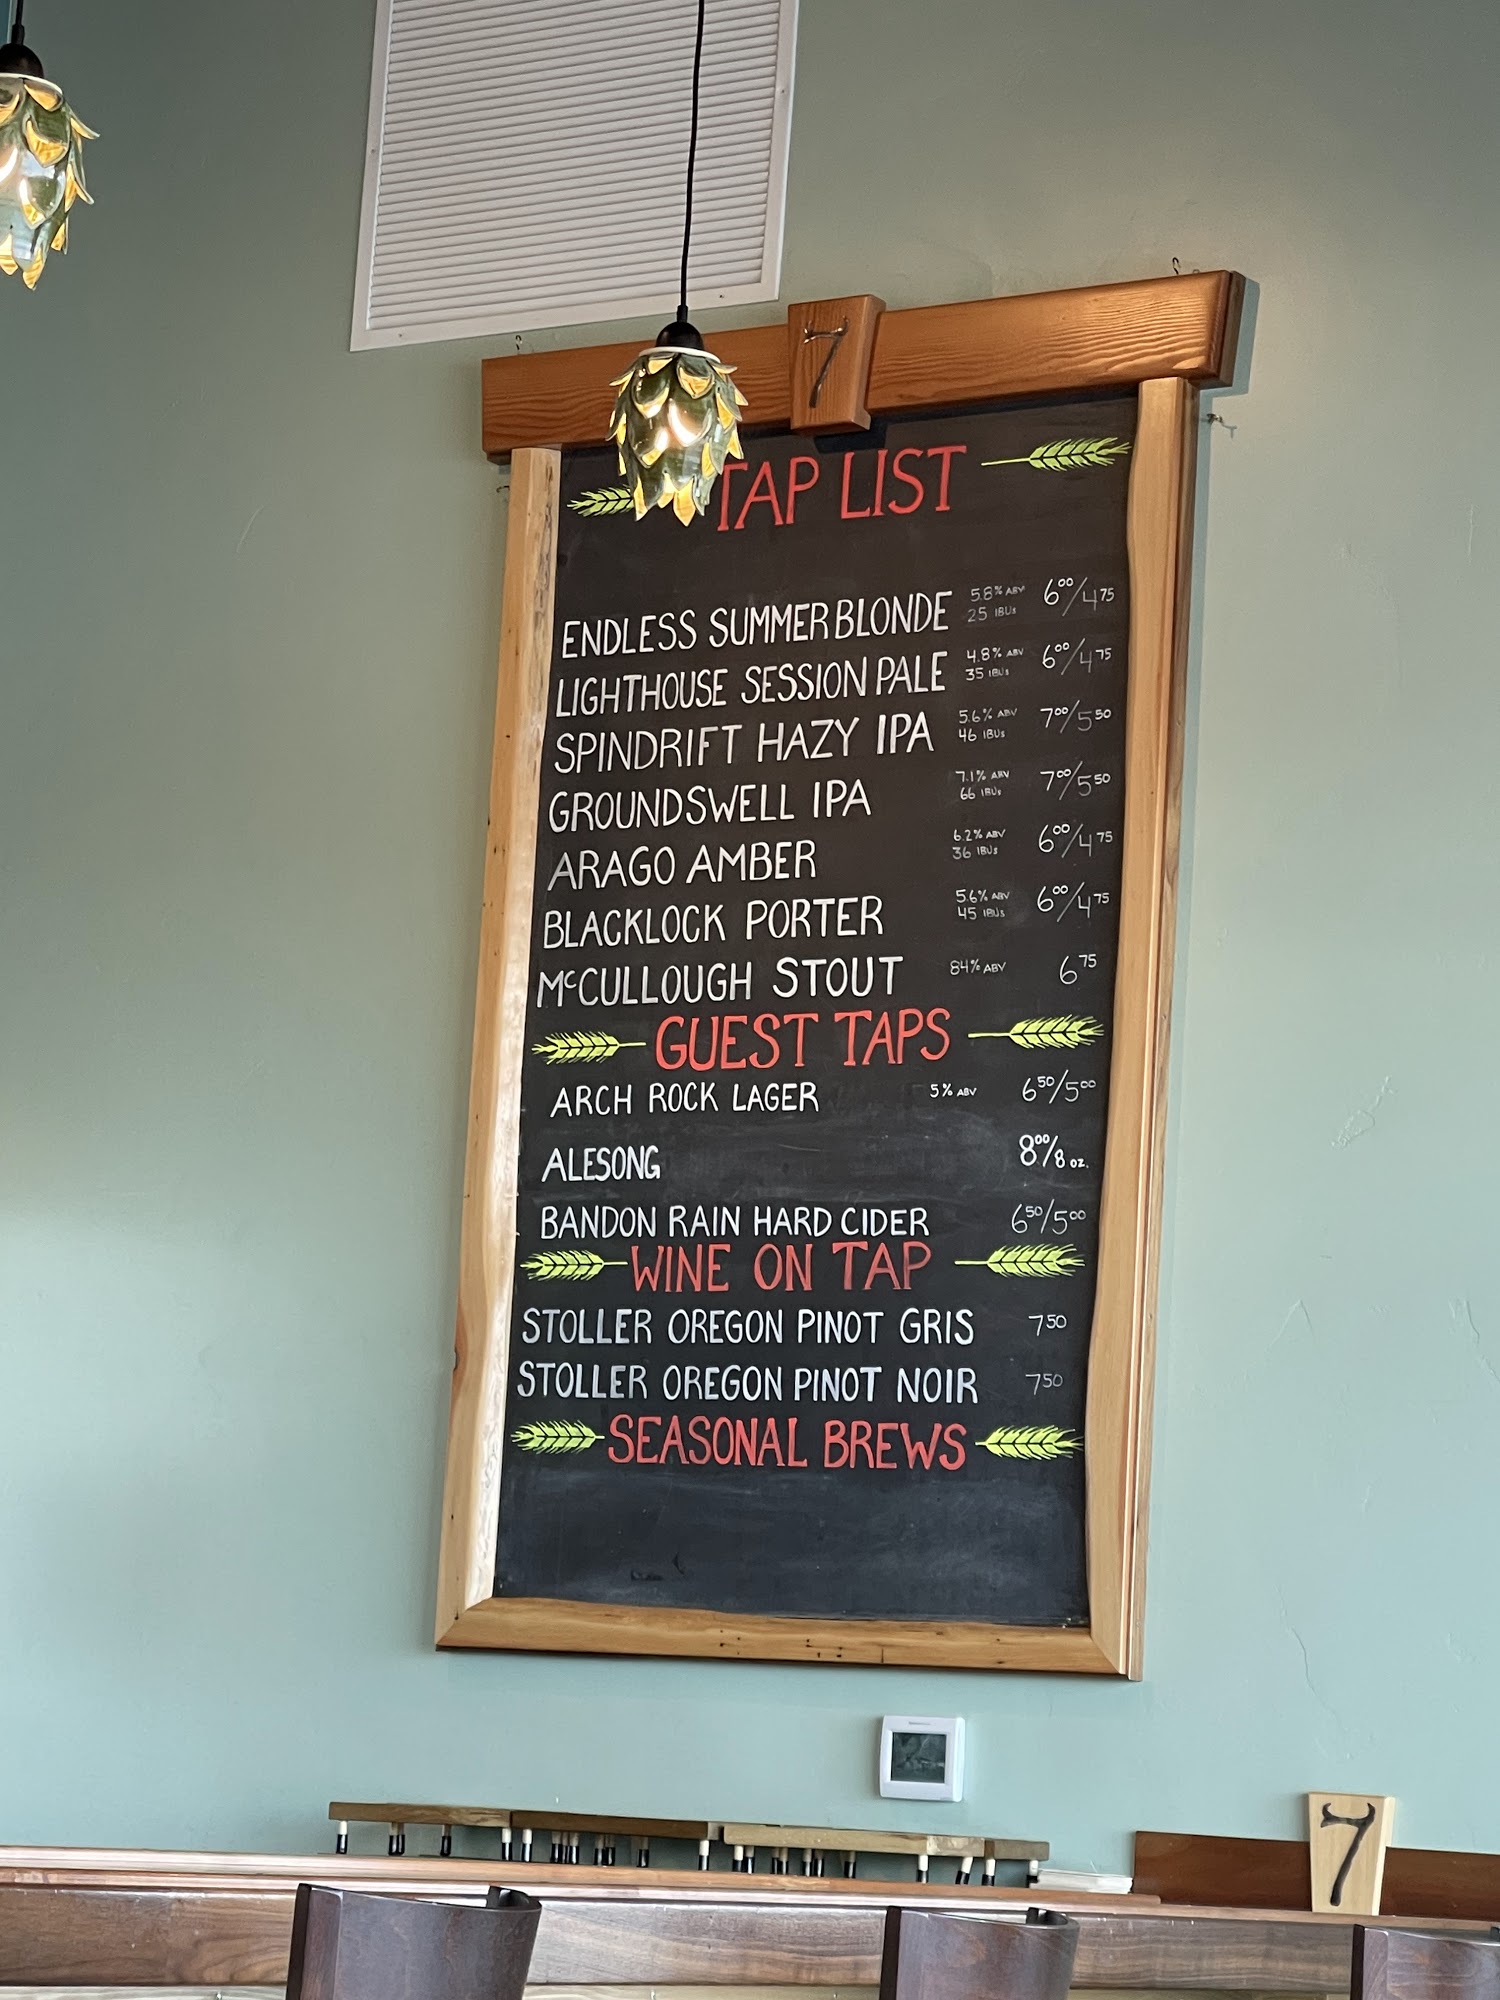 7
TAP LIST
ENDLESS SUMMER BLONDE 5.8% ABV 25 IBUs 6⁰⁰/4⁷⁵
LIGHTHOUSE SESSION PALE 4.8% ABV 35 IBUs 6⁰⁰/4⁷⁵
SPINDRIFT HAZY IPA 5.6% ABV 46 IBUs 7⁰⁰/5⁵⁰
GROUNDSWELL IPA 7.1% ABV 66 IBUs 7⁰⁰/5⁵⁰
ARAGO AMBER 6.2% ABV 36 IBUs 6⁰⁰/4⁷⁵
BLACKLOCK PORTER 5.6% ABV 45 IBUs 6⁰⁰/4⁷⁵
McCULLOUGH STOUT 84% ABV 6⁷⁵
GUEST TAPS
ARCH ROCK LAGER 5% ABV 6⁵⁰/5⁰⁰
ALESONG 8⁰⁰/8 oz.
BANDON RAIN HARD CIDER 6⁵⁰/5⁰⁰
WINE ON TAP
STOLLER OREGON PINOT GRIS 7⁵⁰
STOLLER OREGON PINOT NOIR 7⁵⁰
SEASONAL BREWS
7